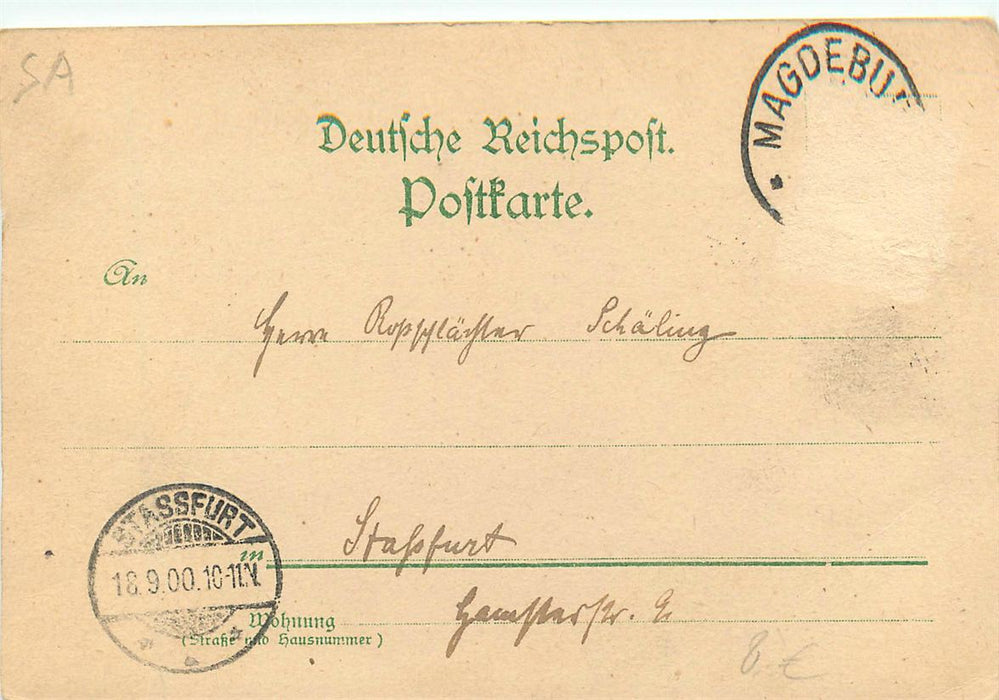 SA
MAGDEBU
Deutsche Reichspost.
Postkarte.
An
Herrn Roßschlächter Schäling
Staßfurt
in
STASSFURT
18.9.00.10-11.V.
Wohnung
(Straße und Hausnummer)
8.€